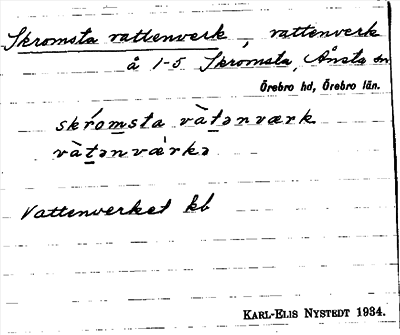 Skromsta vattenverk, vattenverk
å 1-5 Skromsta, Ånsta sn
Örebro hd, Örebro län.
skrómsta vàtənværk
vàtənvæ̀rkə
Vattenverket kb
KARL-ELIS NYSTEDT 1934.